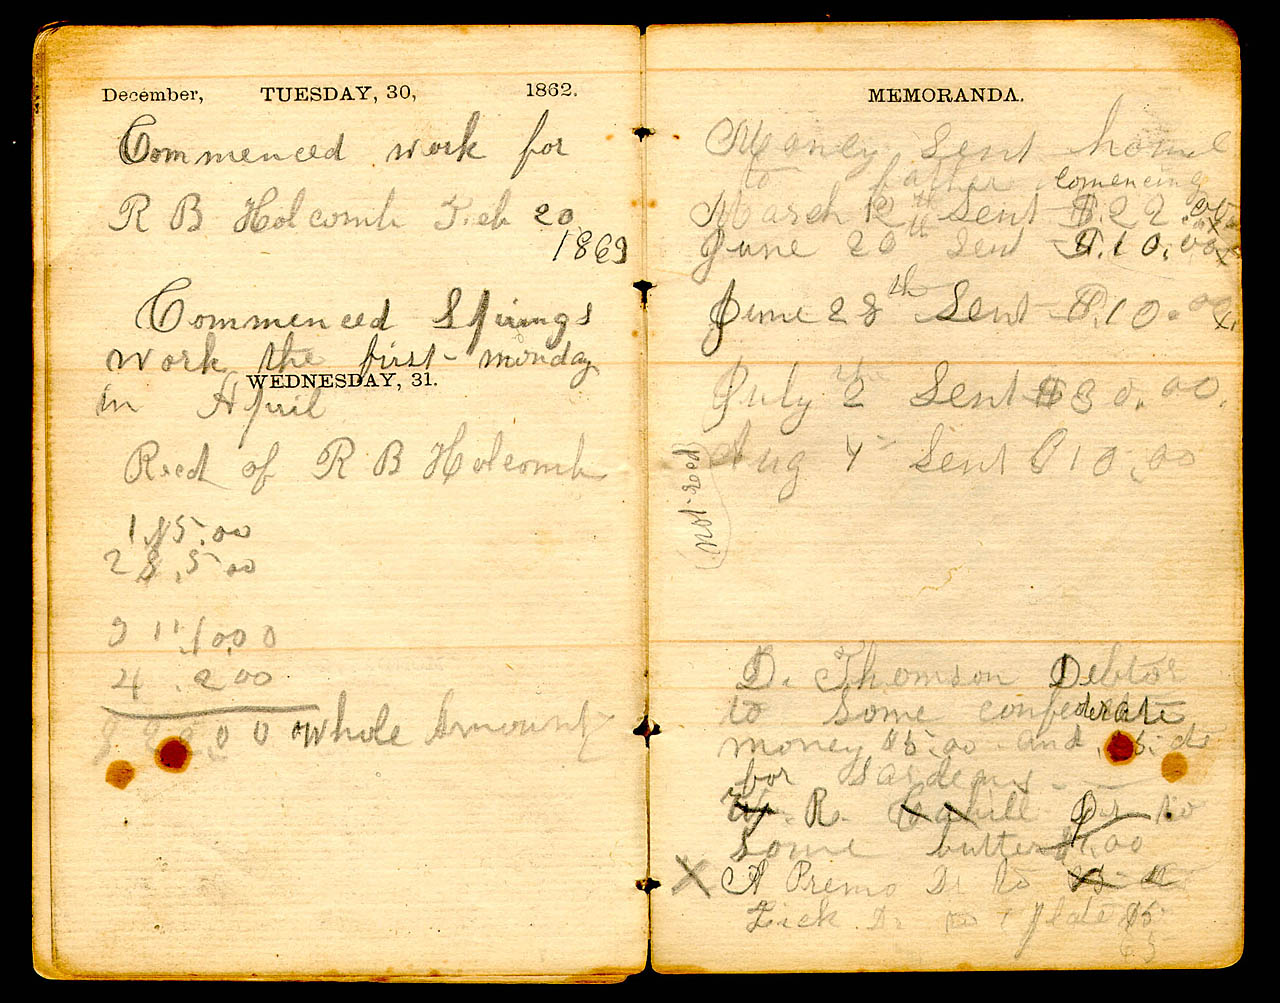 December, TUESDAY, 30, 1862.
Commenced work for
R B Holcomb Feb 20
1863
Commenced Springs
work the first monday
WEDNESDAY, 31.
in April
Recd of R B Holcomb
1 $5.00
2 8.5 00
3 11 1000
4 .200
00 Whole Amount
MEMORANDA.
Money Sent home
to father comencing
March 12th Sent $.22.
June 20th Sent $.10.00 x
June 28th Sent $.10.00 x
July 2 Sent $30.00.
Aug 4 Sent $10.00
Not-recd
D. Thomson Debtor
to some confederate
money $5.00 and 5. cts
for Sardens
W. R. Cahill Dr to
Some butter $1.00
X A Premo Dr to
Lick Dr to plate $5
65